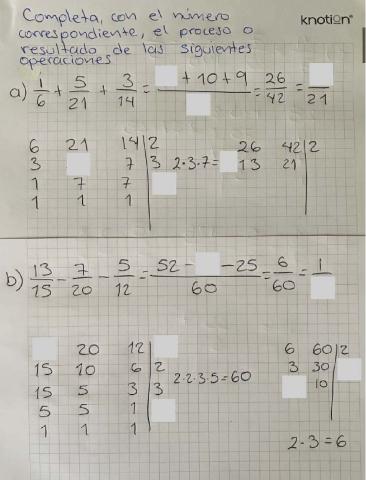 Completa, con el número
correspondiente, el proceso o
resultado de las siguientes
operaciones
knotion®
a) 1/6 + 5/21 + 3/14 = + 10 + 9 / = 26/42 = /21
6 21 14 | 2
3 7 | 3 2·3·7=
1 7 7 |
1 1 1 |
26 42 | 2
13 21
b) 13/15 - 7/20 - 5/12 = 52 - - 25 / 60 = 6/60 = 1/
20 12 |
15 10 6 | 2
15 5 3 | 3 2·2·3·5=60
5 5 1 |
1 1 1 |
6 60 | 2
3 30 |
10 |
2·3=6